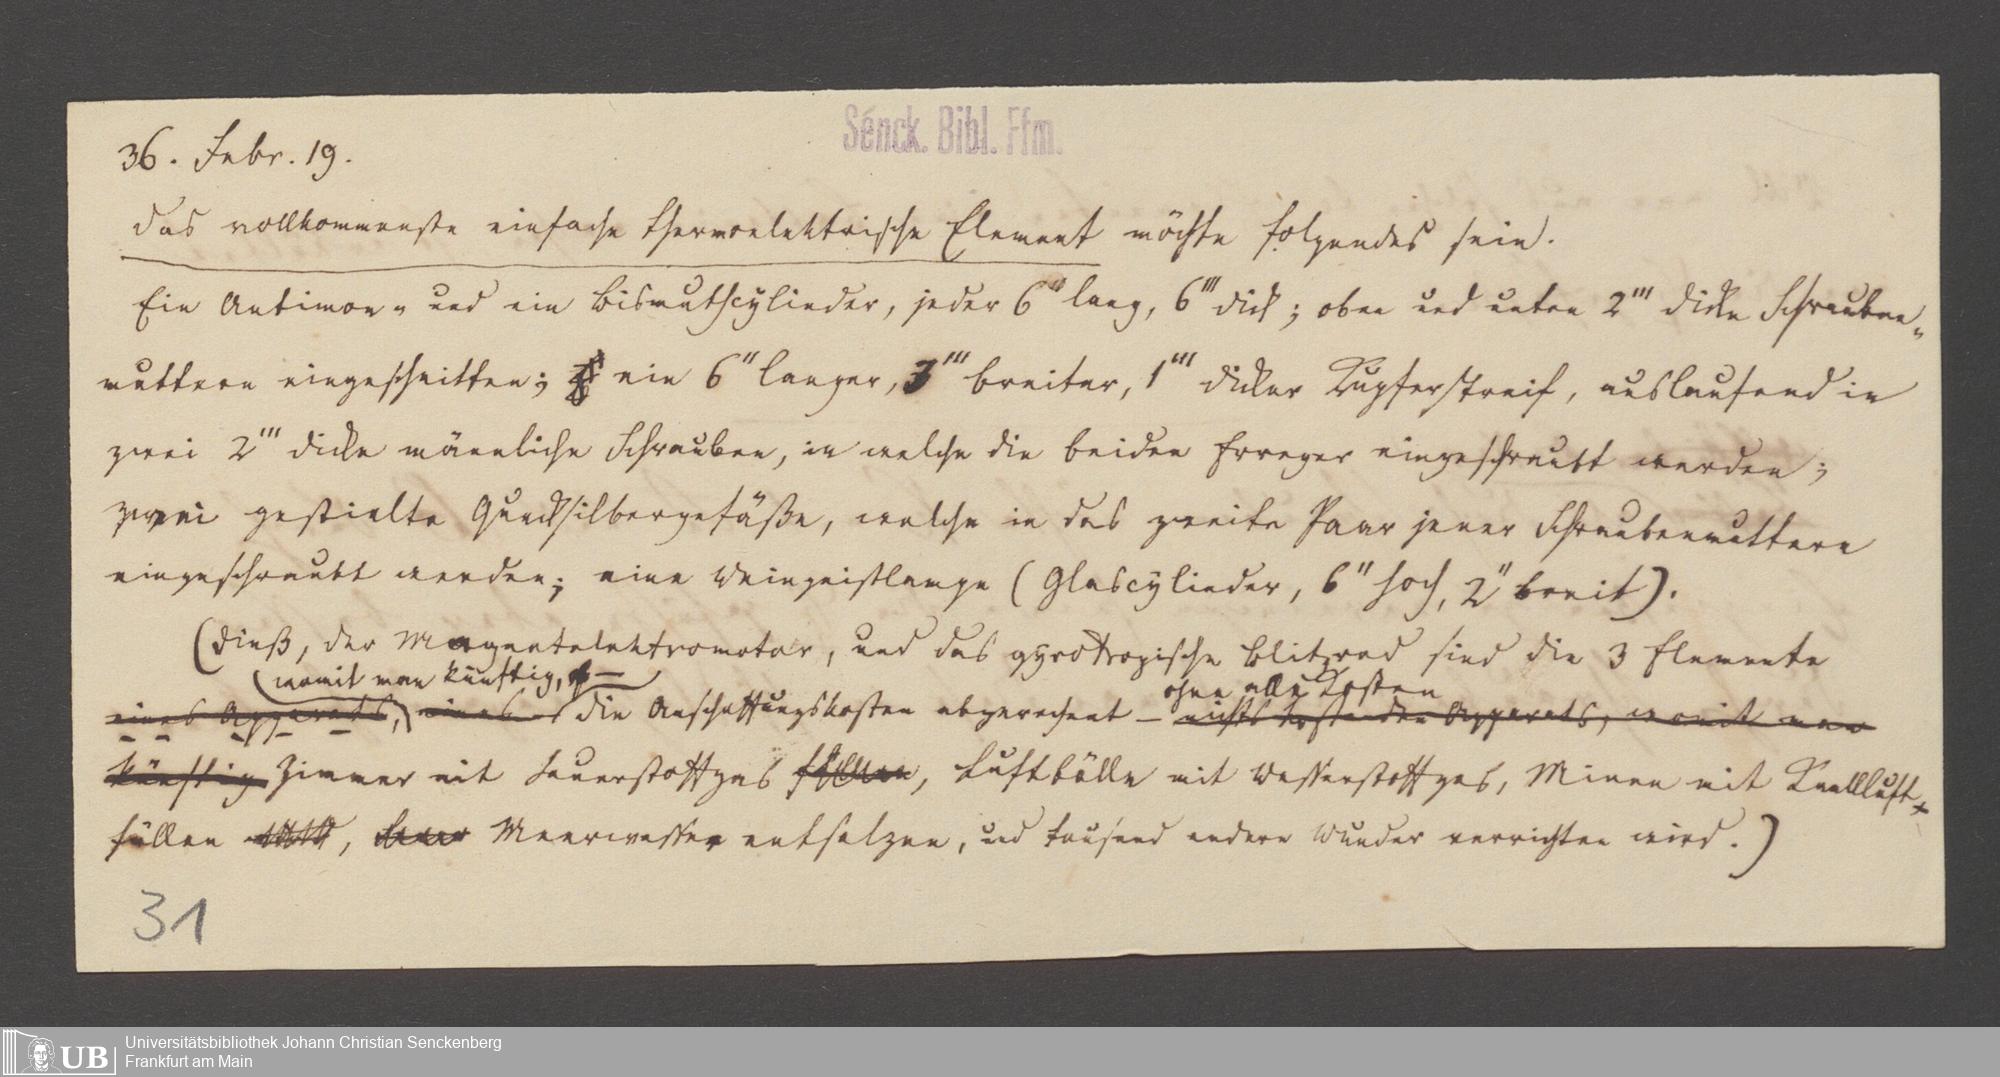 Senck. Bibl. Ffm.
36. Febr. 19.
Das vollkommenste einfache thermoelektrische Element möchte folgendes sein.
Ein Antimon- und ein Bismuthcylinder, jeder 6" lang, 6''' dick; oben und unten 2''' dicke Schrauben-
muttern eingeschnitten; ein 6" langer, 3''' breiter, 1''' dicker Kupferstreif, auslaufend in
zwei 2''' dicke männliche Schrauben, in welche die beiden Erreger eingeschraubt werden;
zwei gestielte Quecksilbergefäße, welche in das zweite Paar jener Schraubenmuttern
eingeschraubt werden; eine Weingeistlampe (Glascylinder, 6" hoch, 2" breit).
(Dieß, der Magnetelektromotor, und das gyrotropische Blitzrad sind die 3 Elemente
womit man künftig, – ohne alle Kosten
eines Apparats, eines die Anschaffungskosten abgerechnet – nichts kostenden Apparats, womit man
künftig Zimmer mit Sauerstoffgas füllen, Luftbälle mit Wasserstoffgas, Minen mit Knallluft
füllen, Meerwasser entsalzen, und tausend andere Wunder verrichten wird.)
31
UB
Universitätsbibliothek Johann Christian Senckenberg
Frankfurt am Main